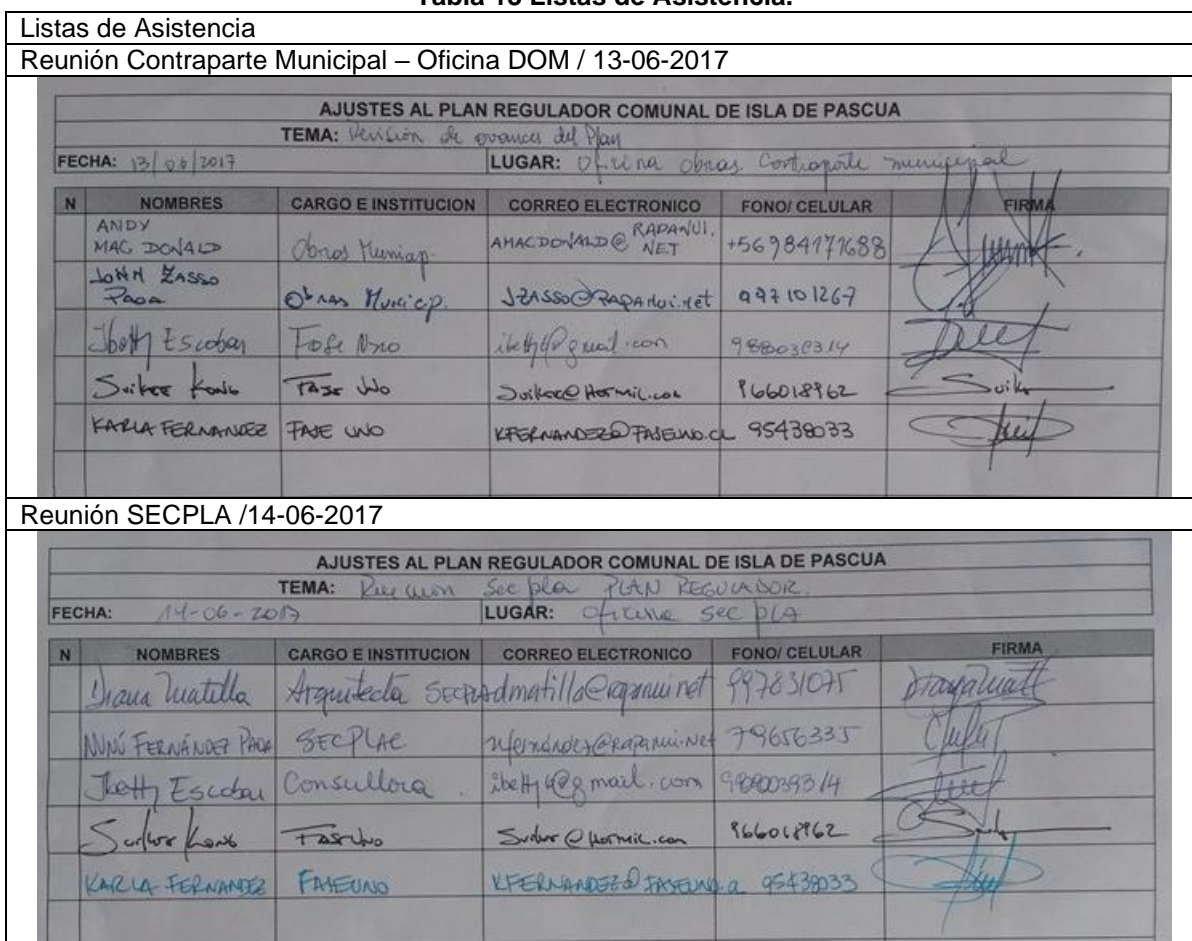 Tabla 18 Listas de Asistencia.
Listas de Asistencia
Reunión Contraparte Municipal – Oficina DOM / 13-06-2017
AJUSTES AL PLAN REGULADOR COMUNAL DE ISLA DE PASCUA
TEMA: Revisión de avances del Plan
FECHA: 13/06/2017 LUGAR: Oficina Obras Contraparte municipal
N NOMBRES CARGO E INSTITUCION CORREO ELECTRONICO FONO/ CELULAR FIRMA
ANDY MAC DONALD Obras Municip. AMACDONALD@RAPANUI.NET +56984171688
JONN ZASSO PAOA Obras Municip. JZASSO@RAPANUI.NET 997101267
Ibetty Escobar Fase Uno
Suikee Kong FASE UNO 966018962 Suik
KARLA FERNANDEZ FASE UNO KFERNANDEZ@FASEUNO.CL 95438033
Reunión SECPLA /14-06-2017
AJUSTES AL PLAN REGULADOR COMUNAL DE ISLA DE PASCUA
TEMA: Reunion Secpla PLAN REGULADOR.
FECHA: 14-06-2017 LUGAR: Oficina Secpla
N NOMBRES CARGO E INSTITUCION CORREO ELECTRONICO FONO/ CELULAR FIRMA
Diana Matilla Arquitecta SECPLA dmatilla@rapanui.net 997831075
FERNÁNDEZ PAOA SECPLAC nfernández@rapanui.net 79656335
Ibetty Escobar Consultora
Kong Fase Uno 966018962
KARLA FERNANDEZ FASEUNO KFERNANDEZ@FASEUNO.CL 95438033